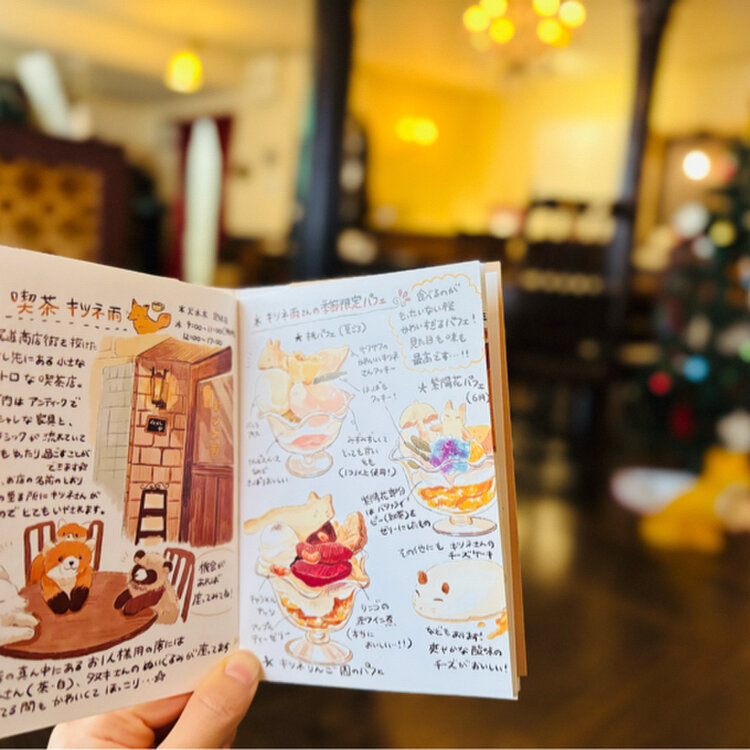 喫茶 キツネ雨
★火水木 定休日
道商店街を抜けた
し先にある小さな
トロな喫茶店。
内はアンティークで
シャレな家具と、
シックが流れていて
ゆったり過ごすことが
できます☆
、お店の名前のしおり
の至る所にキツネさんが
のでとてもいやされます。
機会が
あれば
座ってみてね!
の真ん中にあるお1人様用の席には
さん(茶・白)、タヌキさんのぬいぐるみが座ってます
てる間もかわいくてほっこり…☆
★キツネ雨さんの季節限定パフェ
食べるのが
もったいない程
かわいすぎるパフェ!
見た目も味も
最高です…!!
★桃パフェ(夏ごろ)
サクサクの
かわいいキツネ
さんクッキー
はっぱも
クッキー!
みずみずしくて
とっても甘い
もも
★紫陽花パフェ
(6月)
紫陽花部分
はバタフライ
ピー(紅茶)を
ゼリーにしたもの
その他にも キツネさんの
チーズケーキ
などもあります!
爽やかな酸味の
チーズがおいしい!
キャラメル
ナッツ
アップル
ティーゼリー
リンゴの
赤ワイン煮
(本当に
おいしい…!!)
★キツネりんご園のパフェ